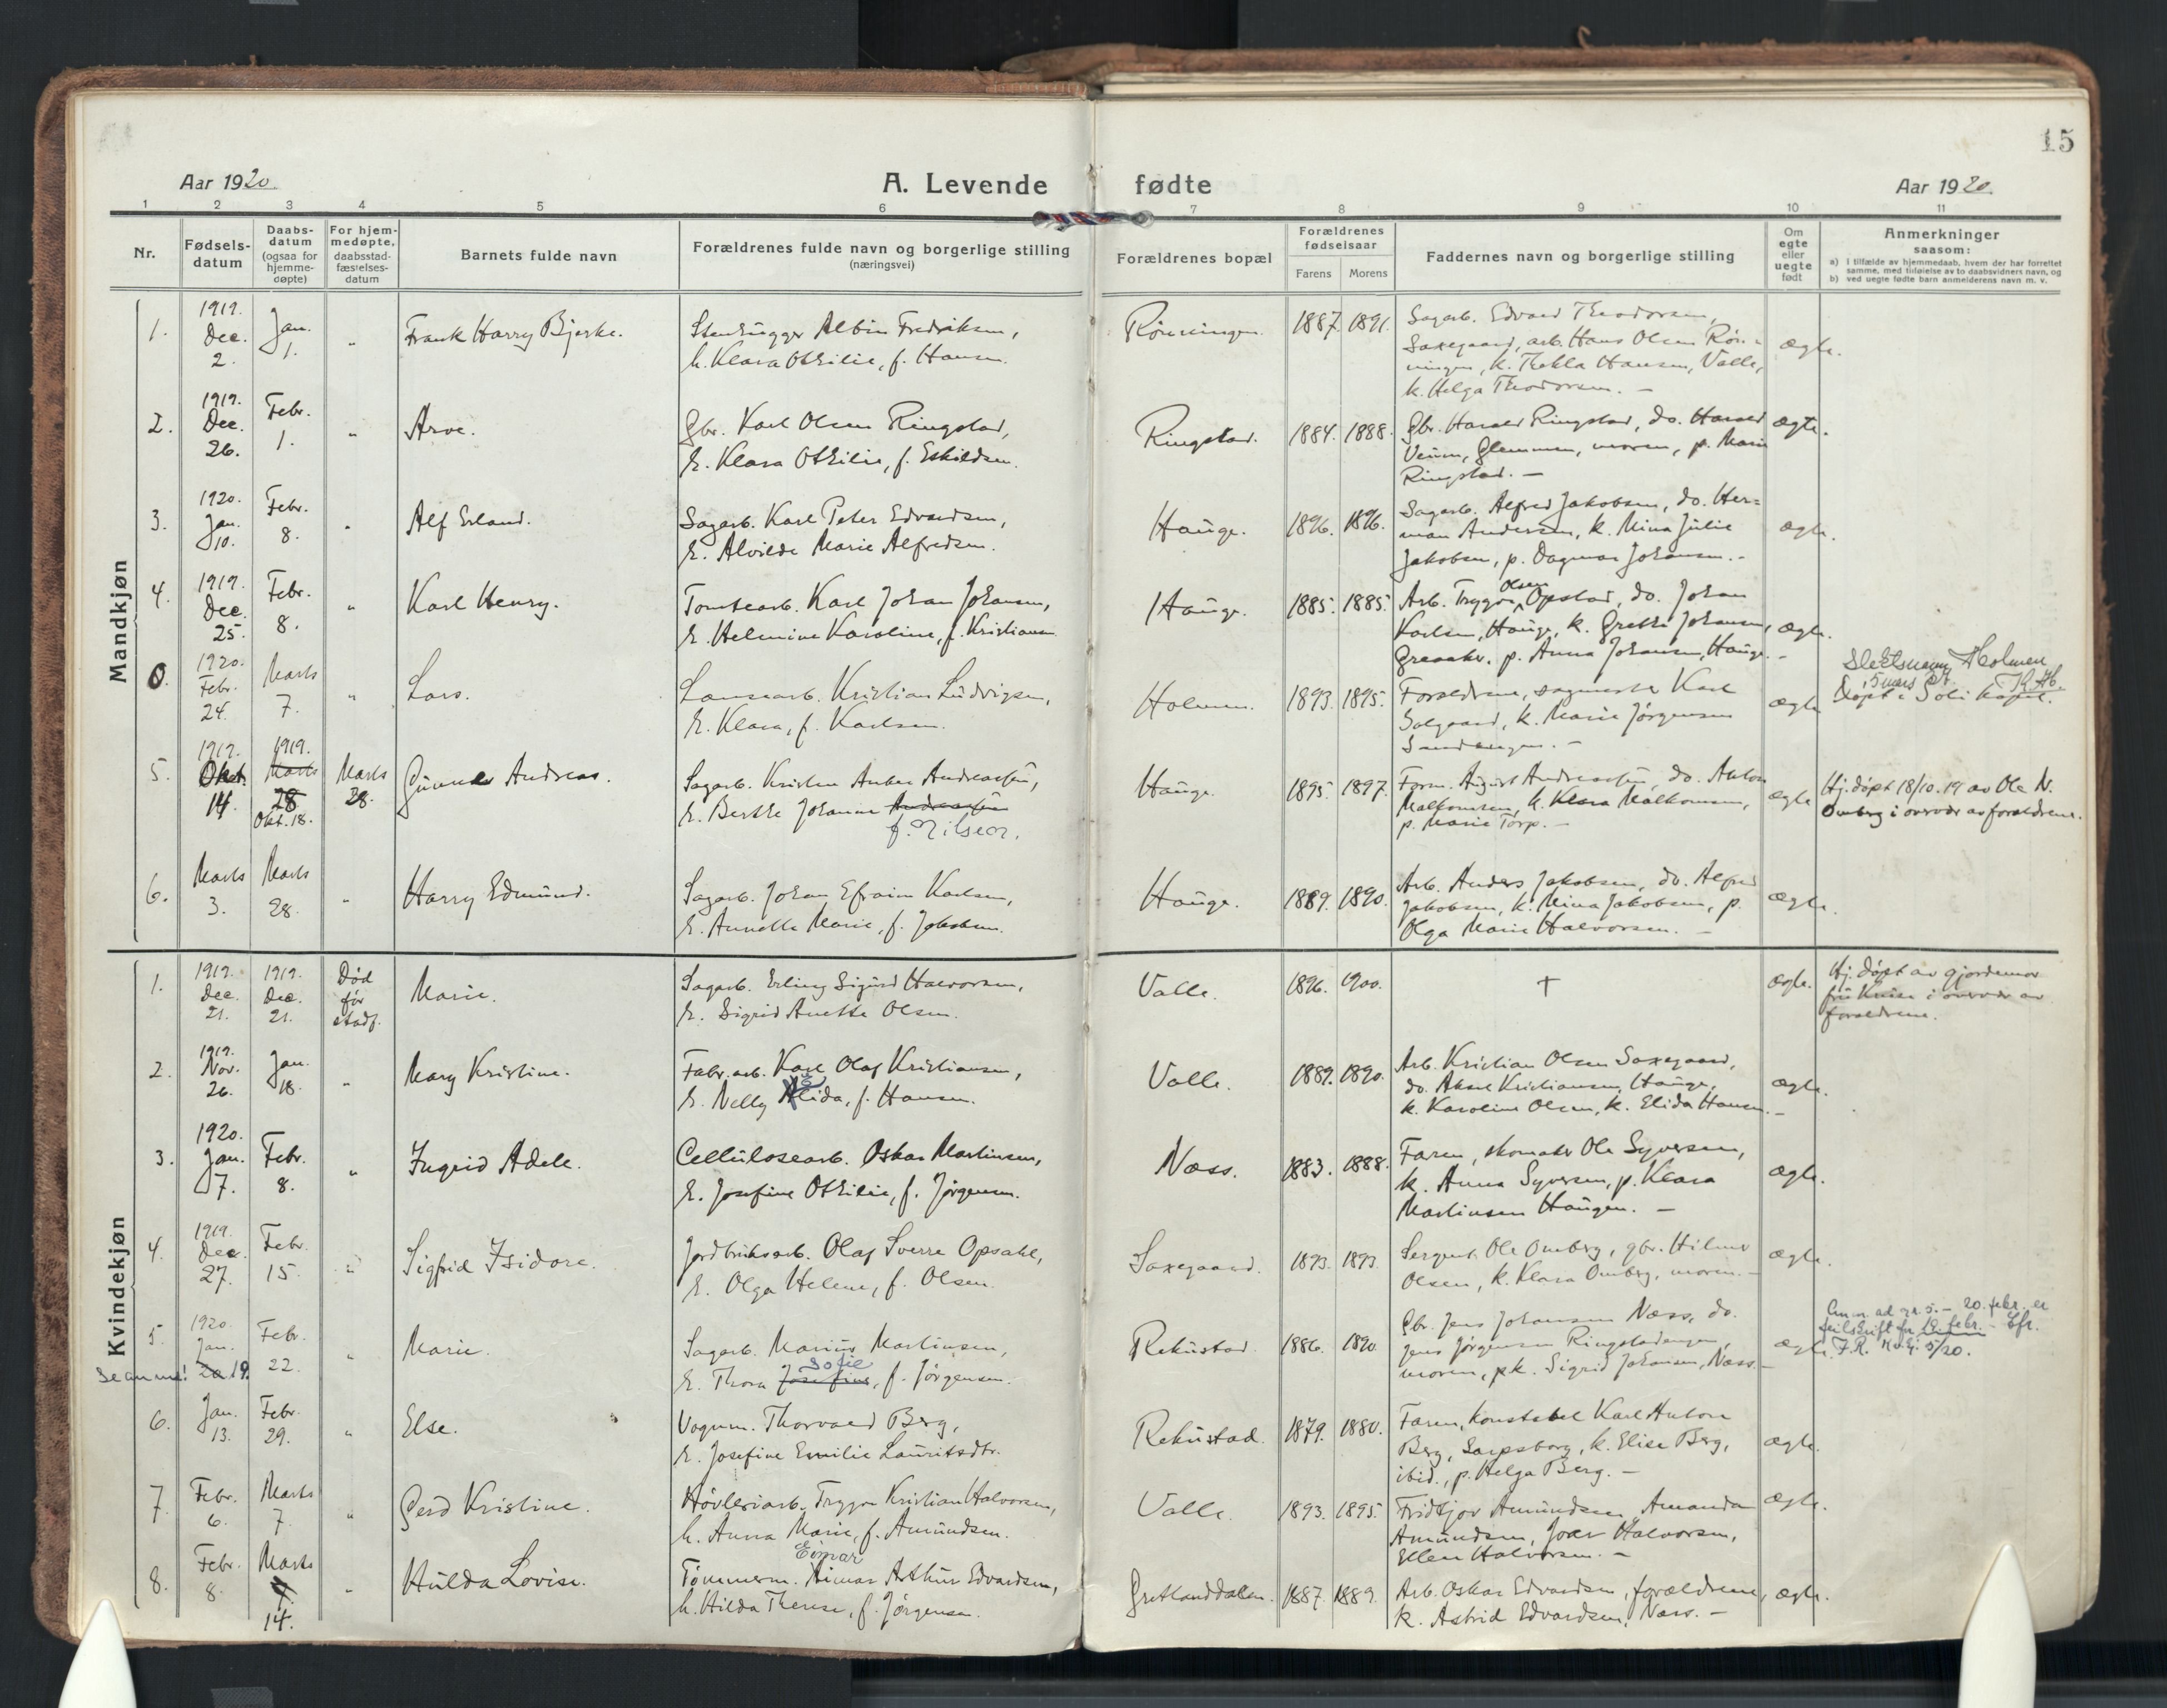 15
Aar 1920.
A. Levende fødte
Aar 1920.
1 2 3 4 5 6 7 8 9 10 11
Nr.
Fødsels-
datum
Daabs-
datum
(ogsaa for
hjemme-
døpte)
For hjem-
medøpte,
daabsstad-
fæstelses-
datum
Barnets fulde navn
Forældrenes fulde navn og borgerlige stilling
(næringsvei)
Forældrenes bopæl
Forældrenes
fødselsaar
Farens Morens
Faddernes navn og borgerlige stilling
Om
egte
eller
uegte
født
Anmerkninger
saasom:
a) i tilfælde av hjemmedaab, hvem der har forrettet
samme, med tilføielse av to daabsvidners navn, og
b) ved uegte fødte barn anmelderens navn m. v.
Mandkjøn
1.
1919.
Dec.
2.
Jan.
1.
"
Frank Harry Bjerke.
Stenhugger Albin Fredriksen,
h. Klara Othilie, f. Hansen.
Rønningen.
1887. 1891.
Sagarb. Edvard Theodorsen,
Saxegaard, arb. Hans Olsen Røn-
ningen, k. Thekla Hansen, Valle,
k. Helga Theodorsen. -
ægte.
2.
1919.
Dec.
26.
Febr.
1.
"
Arve.
Gbr. Karl Olsen Ringstad,
h. Klara Othilie, f. Eskildsen.
Ringstad.
1884. 1888.
Gbr. Harald Ringstad, do. Harald
Veum, Glemmen, moren, p. Marie
Ringstad. -
ægte.
3.
1920.
Jan.
10.
Febr.
8.
"
Alf Erland.
Sagarb. Karl Peter Edvardsen,
h. Alvilde Marie Alfredsen.
Hauge.
1896. 1896.
Sagarb. Alfred Jakobsen, do. Her-
man Andersen, k. Mina Julie
Jakobsen, p. Dagmar Johansen. -
ægte.
4.
1919.
Dec.
25.
Febr.
8.
"
Karl Henry.
Tomtearb. Karl Johan Johansen,
h. Helmine Karoline, f. Kristiansen
Hauge.
1885. 1885.
Olsen
Arb. Trygve Opstad, do. Johan
Karlsen, Hauge, k. Grethe Johansen,
Greaaker, p. Anna Johansen, Hauge. -
ægte.
0.
1920.
Febr.
24.
Marts
7.
"
Lars.
Lænsearb. Kristian Ludvigsen,
h. Klara, f. Karlsen.
Holmen.
1893. 1895.
Forældrene, sagmester Karl
Solgaard, k. Marie Jørgensen
Sandengen. -
ægte
Slektsnavn Holmen
5 mars 27. K.H.
Døpt i Soli kapel.
5.
1919.
Okt.
14.
1919.
Marts
28
Okt. 18.
Marts
28.
Gunnar Andreas.
Sagarb. Kristen Anker Andreassen,
h. Berthe Johanne Andreassen
f. Nilsen.
Hauge.
1895. 1897.
Form. August Andreassen, do. Anton
Malkomsen, k. Klara Malkomsen,
p. Marie Torp. -
ægte
Hj. døpt 18/10.19 av Ole N.
Omberg i overvær av forældrene.
6.
Marts
3.
Marts
28.
"
Harry Edmund.
Sagarb. Johan Efraim Karlsen,
h. Annette Marie, f. Jakobsen.
Hauge.
1889. 1890.
Arb. Anders Jakobsen, do. Alfred
Jakobsen, k. Mina Jakobsen, p.
Olga Marie Halvorsen. -
ægte.
Kvindekjøn
1.
1919.
Dec.
21.
1919.
Dec.
21.
Død
før
stadf.
Marie.
Sagarb. Erling Sigurd Halvorsen,
h. Sigrid Anette Olsen.
Valle.
1896. 1900.
†
ægte.
Hj. døpt av gjordemor
fru Knise i overvær av
forældrene.
2.
1919.
Nov.
26.
Jan.
18.
"
Mary Kristine.
Fabr.arb. Karl Olaf Kristiansen,
h. Nelly Alida, f. Hansen.
Valle.
1889. 1890.
Arb. Kristian Olsen Saxegaard,
do. Aksel Kristiansen, Hauge,
k. Karoline Olsen, k. Elida Hansen. -
ægte.
3.
1920.
Jan.
7.
Febr.
8.
"
Ingrid Adele.
Cellulosearb. Oskar Martinsen,
h. Josefine Othilie, f. Jørgensen.
Næss.
1883. 1888.
Faren, skomaker Ole Syversen,
k. Anna Syversen, p. Klara
Martinsen Haugen. -
ægte.
4.
1919.
Dec.
27.
Febr.
15.
"
Sigfrid Isidore.
Jordbruksarb. Olaf Sverre Opsahl,
h. Olga Helene, f. Olsen.
Saxegaard.
1893. 1893.
Sergent Ole Omberg, gbr. Hilmer
Olsen, k. Klara Omberg, moren. -
ægte.
5.
1920.
Jan.
20 19.
Se anm.!
Febr.
22.
"
Marie.
Sagarb. Marius Martinsen,
Sofie
h. Thora Josefine, f. Jørgensen.
Rekustad.
1886. 1890.
Gbr. Jens Johansen Næss, do.
Jens Jørgensen Ringstadengen,
moren, pk. Sigrid Johansen, Næss. -
ægte.
Anm. ad nr. 5. - 20. febr. er
feilskrift for 19. febr. - Cfr.
F.R. 5/20.
6.
Jan.
13.
Febr.
29.
"
Else.
Vognm. Thorvald Berg,
h. Josefine Emilie Lauritsdtr.
Rekustad.
1879. 1880.
Faren, konstabel Karl Anton
Berg, Sarpsborg, k. Elise Berg,
ibid., p. Helga Berg. -
ægte.
7.
Febr.
6.
Marts
7.
"
Gerd Kristine.
Høvleriarb. Trygve Kristian Halvorsen,
h. Anna Marie, f. Amundsen.
Valle.
1893. 1895.
Fridtjov Amundsen, Amanda
Amundsen, Joar Halvorsen,
Ellen Halvorsen. -
ægte.
8.
Febr.
8.
Marts
7.
14.
"
Hulda Lovise.
Einar
Tømmerm. Aimar Arthur Edvardsen,
h. Hilda Therese, f. Jørgensen.
Gretlanddalen.
1887. 1889.
Arb. Oskar Edvardsen, forældrene,
k. Astrid Edvardsen, Næss. -
ægte.